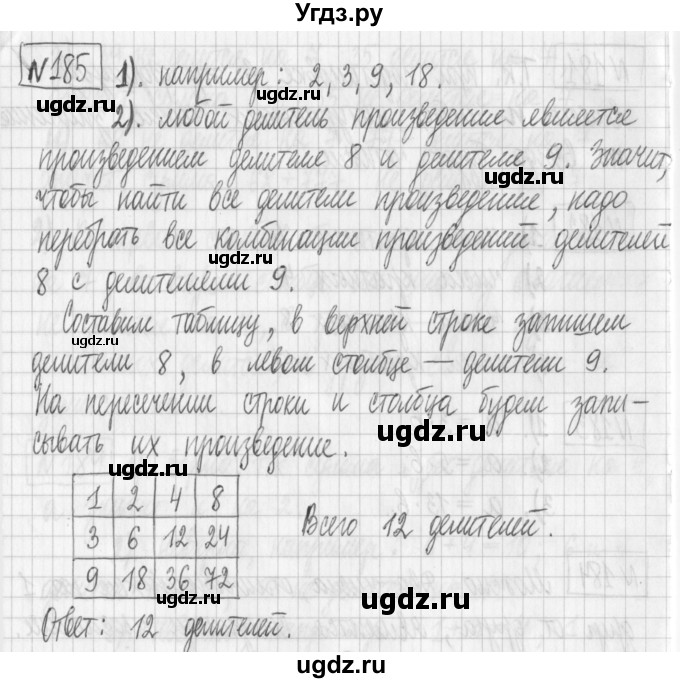 Угдз.ру
№185 1). например: 2, 3, 9, 18.
ugdz.ru ugdz.ru
2). любой делитель произведение является
произведением делителе 8 и делителе 9. Значит,
ugdz.ru
чтобы найти все делители произведение, надо
перебрать все комбинации произведений делителей
ugdz.ru
8 с делителеми 9.
Составим таблицу, в верхней строке запишем
делители 8, в левом столбце — делители 9.
ugdz.ru
На пересечении строки и столбца будем запи-
ugdz.ru
сывать их произведение.
ugdz.ru
1 2 4 8
3 6 12 24
9 18 36 72
Всего 12 делителей.
ugdz.ru
Ответ: 12 делителей.
ugdz.ru
ugdz.ru